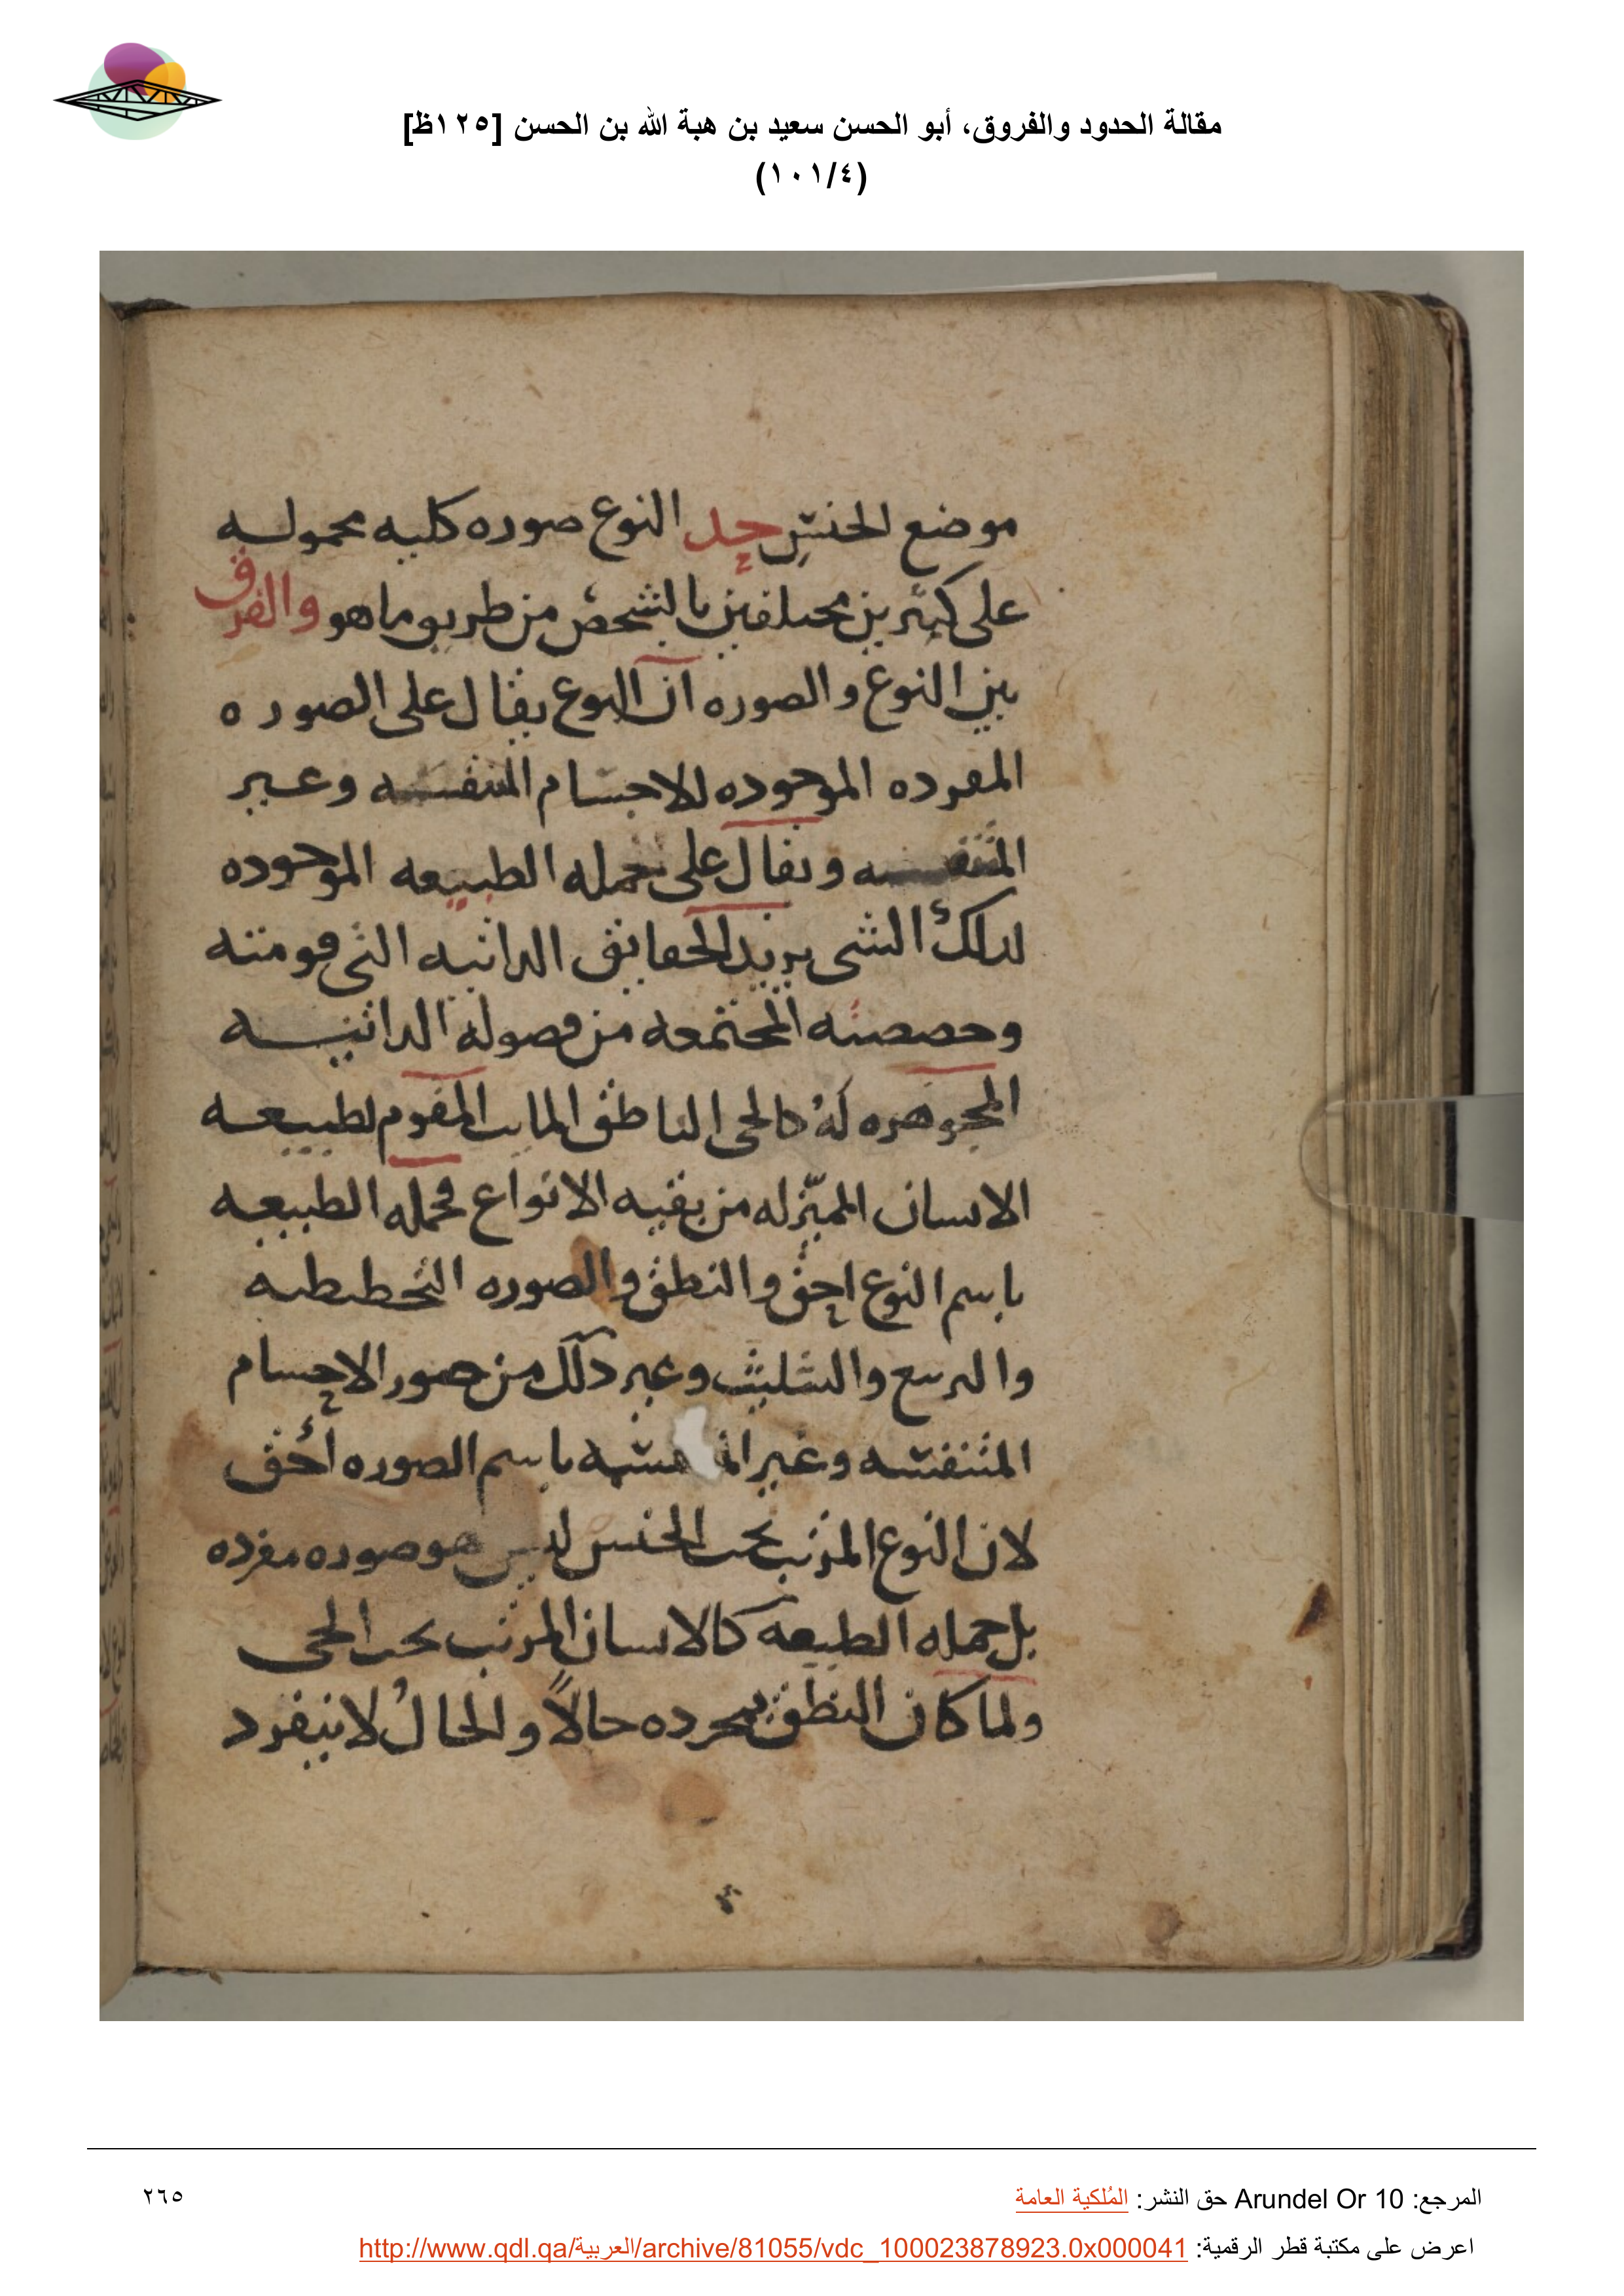 مقالة الحدود والفروق، أبو الحسن سعيد بن هبة الله بن الحسن [١٢٥ظ]
(١٠١/٤)
موضع الجنس حد النوع صوره كليه محموله
على كثيرين مختلفين بالشخص من طريق ما هو والفرق
بين النوع والصوره ان النوع يقال على الصوره
المفرده الموجوده للاجسام المتنفسه وغير
المتنفسه ويقال على جمله الطبيعه الموجوده
لذلك الشى يريد الحقايق الذاتيه التى قومته
وحصصته المجتمعه من فصوله الذاتيه
المجوهره له كالحى الناطق المايت المقوم لطبيعه
الانسان المميزله من بقيه الانواع فجمله الطبيعه
باسم النوع احق والنطق والصوره التخطيطيه
والتربيع والتثليث وغير ذلك من صور الاجسام
المتنفسه وغير باسم الصوره احق
لان النوع المرتب تحت الجنس ليس هو صوره مفرده
بل جمله الطبيعه كالانسان المرتب تحت الحى
ولما كان النطق بمجرده حالا والحال لا ينفرد
المرجع: Arundel Or 10 حق النشر: المُلكية العامة
٢٦٥
اعرض على مكتبة قطر الرقمية: http://www.qdl.qa/العربية/archive/81055/vdc_100023878923.0x000041